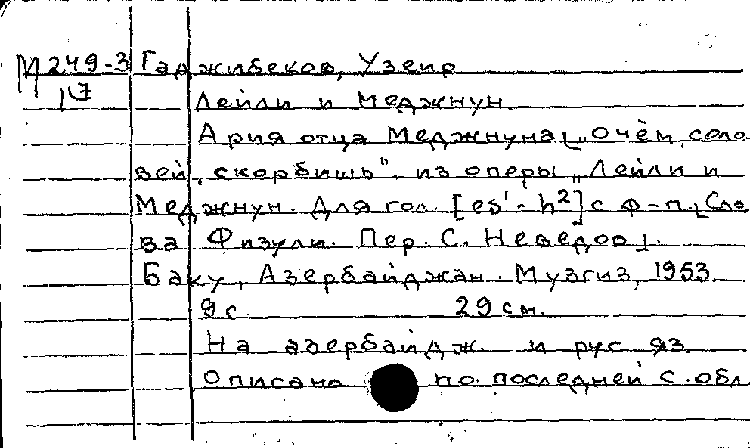 М 249-3 Гаджибеков, Узеир
17 Лейли и Меджнун.
Ария отца Меджнуна [„О чём, соло
вей, скорбишь" из оперы „Лейли и
Меджнун. Для гол. [es¹-h²] с ф-п. [Сло
ва Физули. Пер. С. Неведов].
Баку, Азербайджан. Музгиз, 1953.
9 с 29 см.
На азербайдж. и рус яз.
Описано по последней с. обл